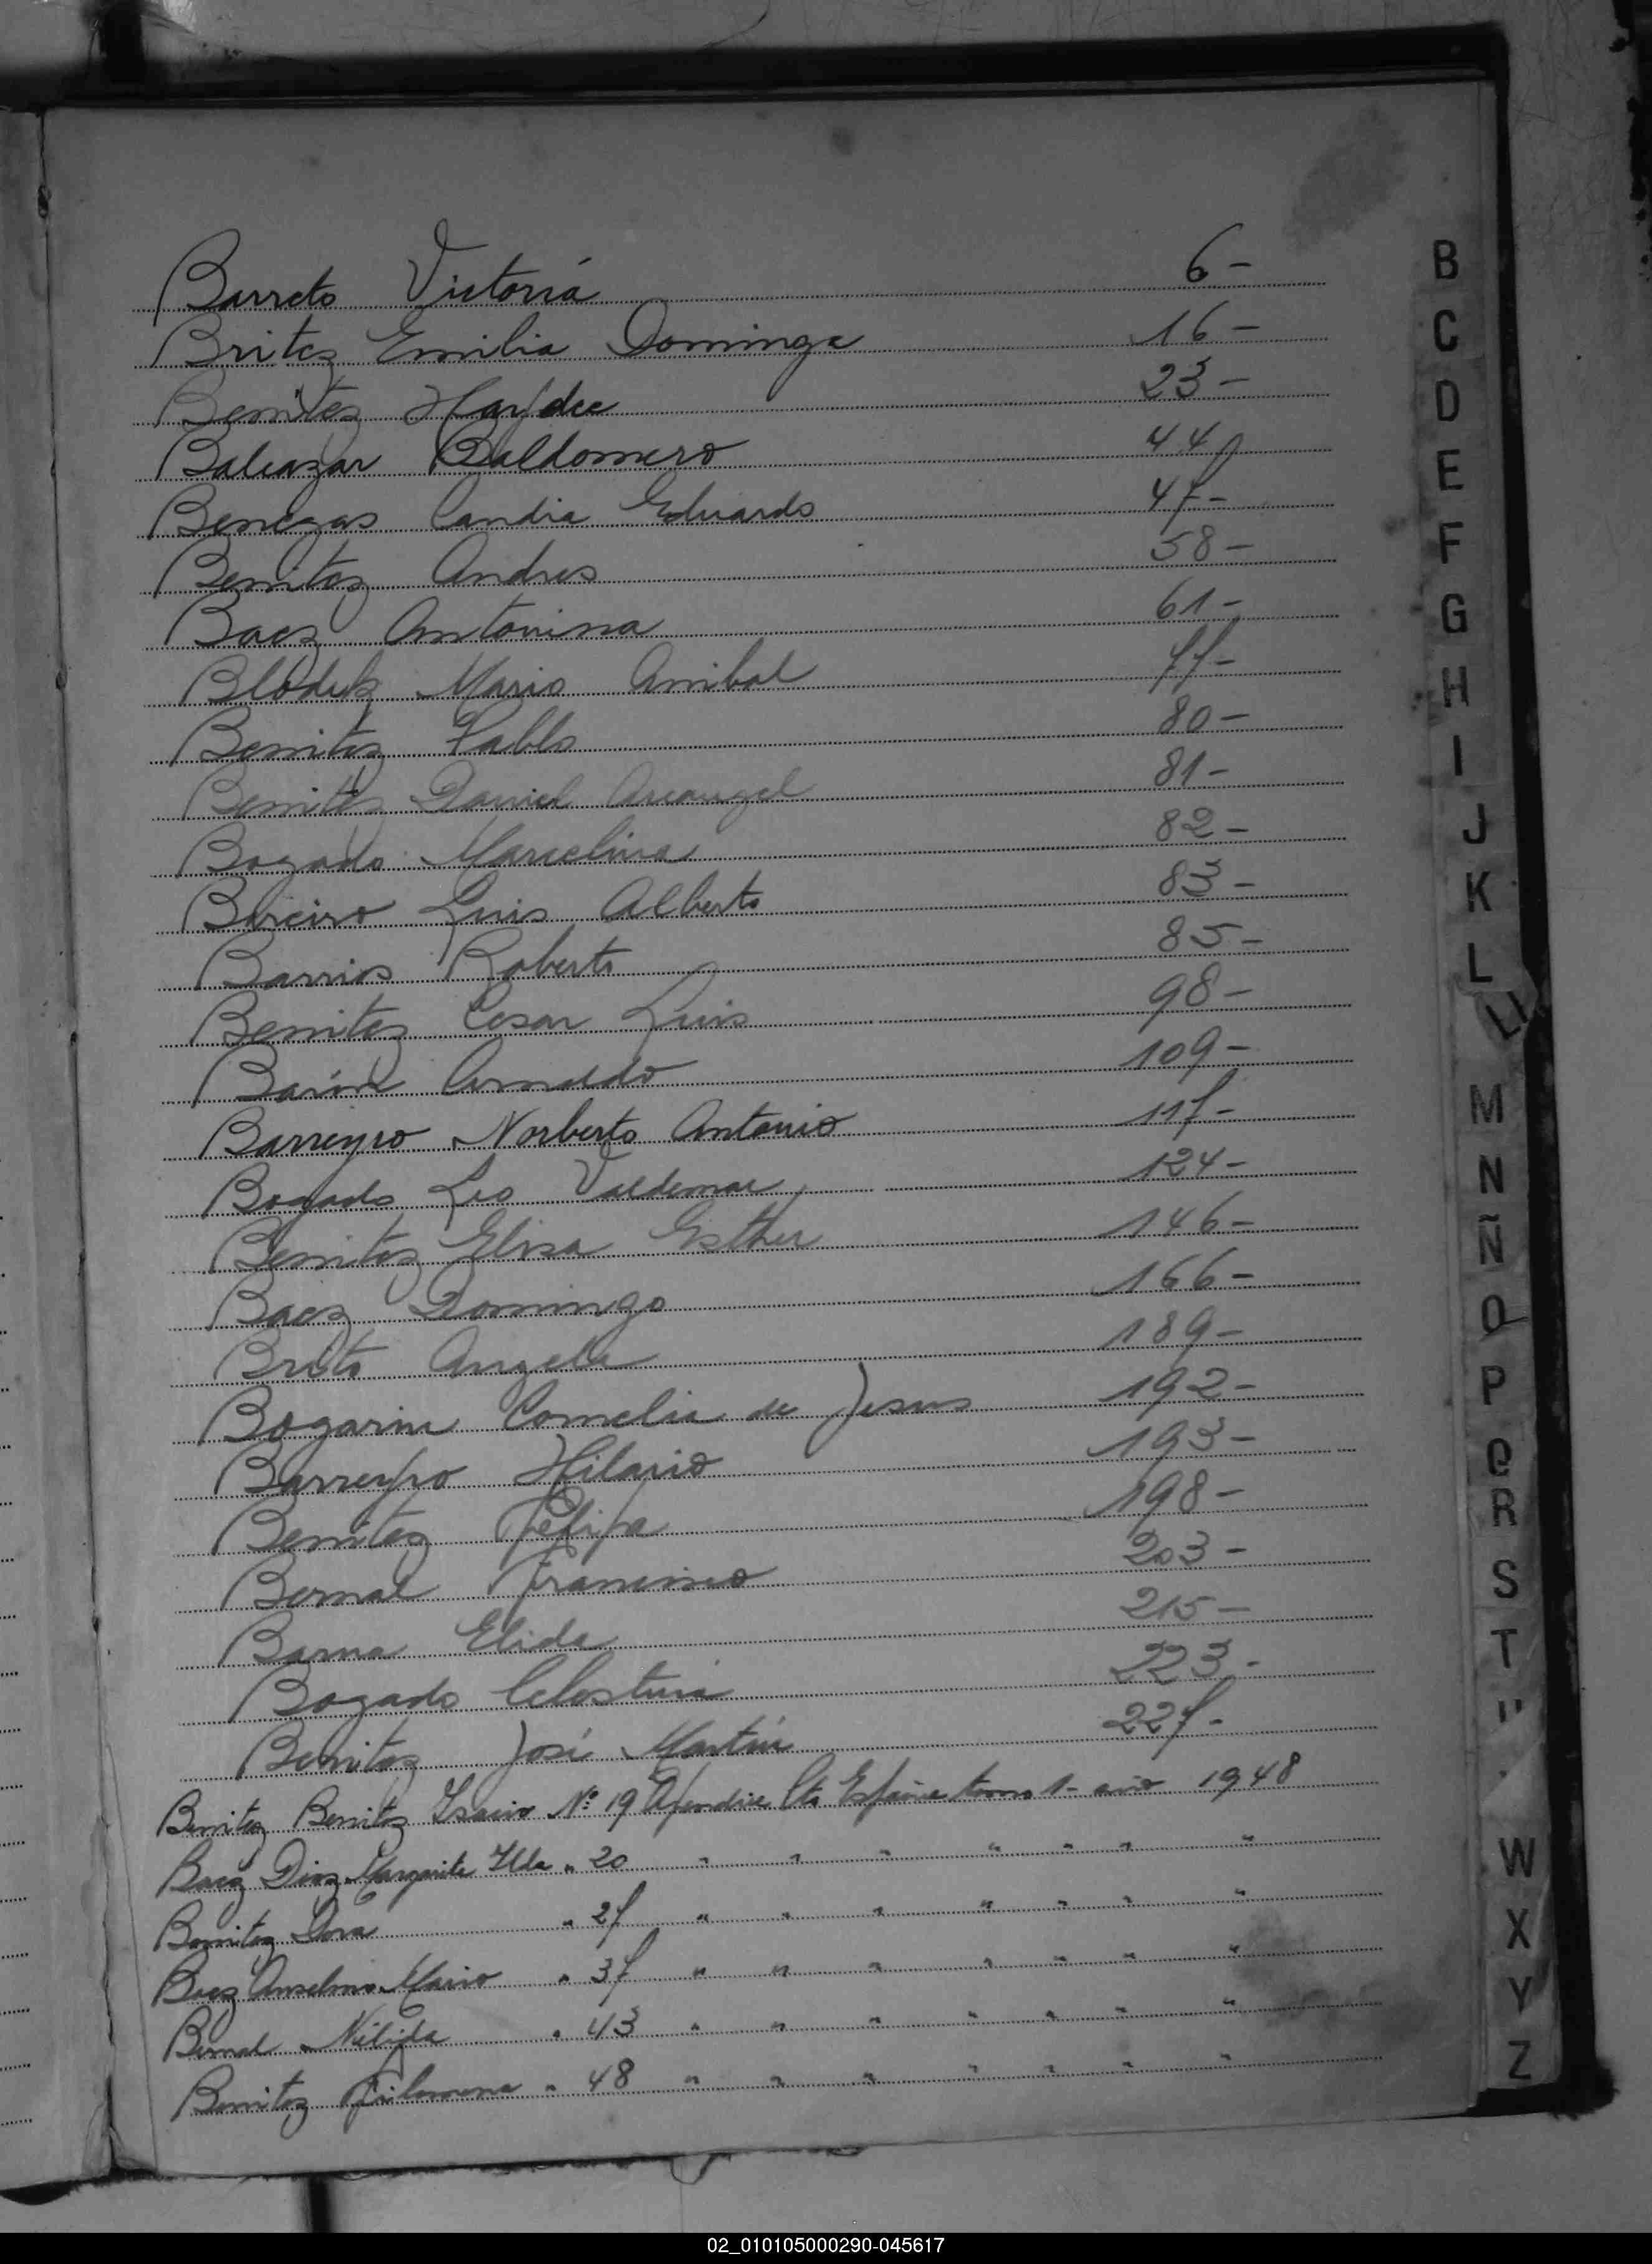 Barreto Victoria 6-
Britez Emilia Dominga 16-
Benitez Haydee 23-
Balcazar Baldomero 44
Benegas Candia Eduardo 47-
Benitez Andres 58-
Baez Antonina 61-
Mario Anibal 77-
Benitez Pablo 80-
Benitez Daniel Arcangel 81-
Bogado Marcelina 82-
Luis Alberto 83-
Barrios Roberto 85-
Benitez Cesar Luis 98-
Arnaldo 109-
Barreyro Norberto Antonio 117-
Bogado Leo Valdemar 124-
Benitez Elisa Esther 146-
Baez Domingo 166-
Brito Angela 189-
Bogarin Cornelia de Jesus 192-
Barreyro Hilario 193-
Benitez Felipa 198-
Bernal Francisco 203-
Elida 215-
Bogado Celestina 223-
Benitez José Martin 227-
Benitez Benitez Nº 19 Apendice tomo 1- año 1948
Baez Diaz Margarita Ilda " 20 " " " " " " "
Benitez Dora " 27 " " " " " " "
Baez Anselmo Mario " 37 " " " " " " "
Bernal Nélida " 43 " " " " " " "
Benitez Filomena " 48 " " " " " " "
B
C
D
E
F
G
H
I
J
K
L
LL
M
N
Ñ
O
P
Q
R
S
T
W
X
Y
Z
02_010105000290-045617